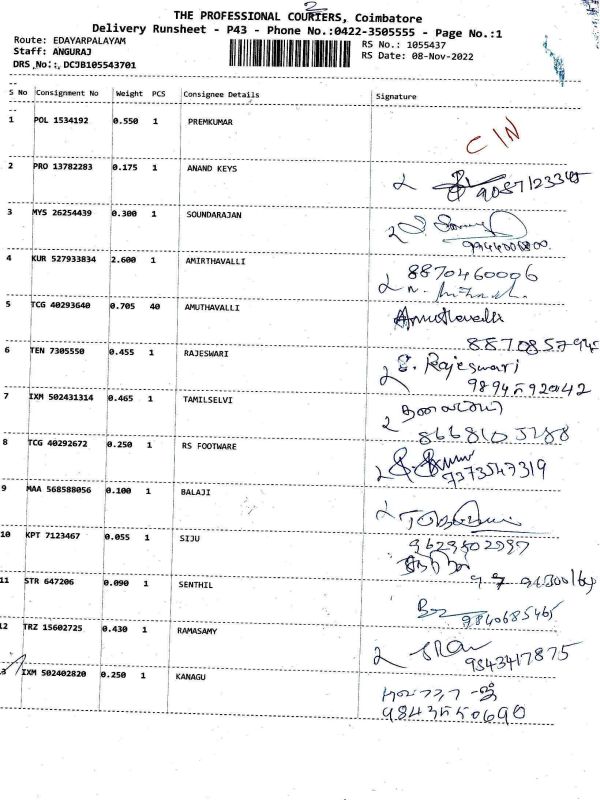 2
THE PROFESSIONAL COURIERS, Coimbatore
Delivery Runsheet - P43 - Phone No.:0422-3505555 - Page No.:1
Route: EDAYARPALAYAM
RS No.: 1055437
Staff: ANGURAJ
RS Date: 08-Nov-2022
DRS No.: DCJB105543701
S No Consignment No Weight PCS Consignee Details Signature
1 POL 1534192 0.550 1 PREMKUMAR CIN
2 PRO 13782283 0.175 1 ANAND KEYS
3 MYS 26254439 0.300 1 SOUNDARAJAN
4 KUR 527933834 2.600 1 AMIRTHAVALLI 8870460006
5 TCG 40293640 0.705 40 AMUTHAVALLI Amuthavalli
6 TEN 7305550 0.455 1 RAJESWARI S. Rajeswari
7 IXM 502431314 0.465 1 TAMILSELVI
8 TCG 40292672 0.250 1 RS FOOTWARE
7373547319
9 MAA 568588056 0.100 1 BALAJI
10 KPT 7123467 0.055 1 SIJU
11 STR 647206 0.090 1 SENTHIL
9840685465
12 TRZ 15602725 0.430 1 RAMASAMY
9543417875
13 IXM 502402820 0.250 1 KANAGU
9843550690